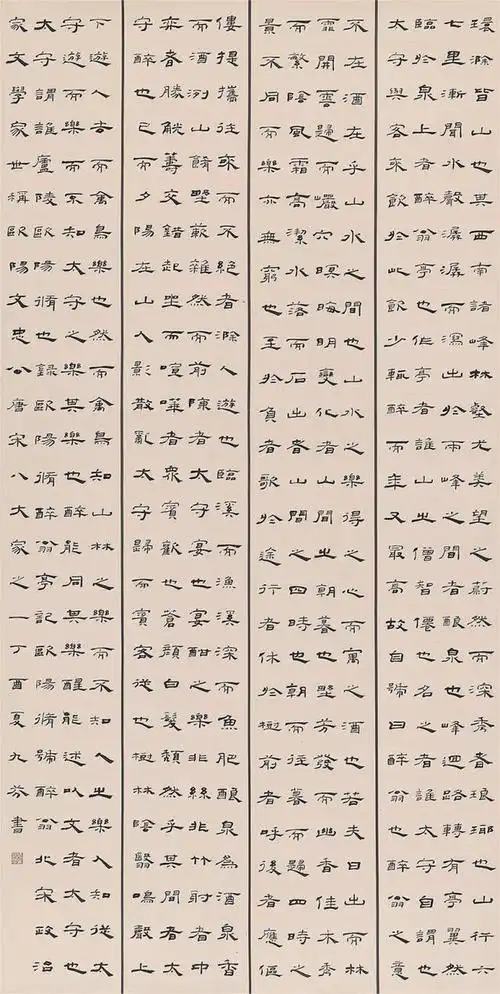 環滁皆山也其西南諸峰林壑尤美望之蔚然而深秀者琅琊也山行六
七里漸聞水聲潺潺而瀉出於兩峰之間者釀泉也峰迴路轉有亭翼然
臨於泉上者醉翁亭也作亭者誰山之僧智僊也名之者誰太守自謂也
大守與客來飲於此飲少輒醉而年又最高故自號曰醉翁也醉翁之意
不在酒在乎山水之間也山水之樂得之心而寓之酒也若夫日出而林
霏開雲歸而巖穴暝晦明變化者山間之朝暮也野芳發而幽香佳木秀
而繁陰風霜高潔水落而石出者山間之四時也朝而往暮而歸四時之
景不同而樂亦無窮也至於負者歌於途行者休於樹前者呼後者應傴
僂提攜往來而不絕者滁人遊也臨溪而漁溪深而魚肥釀泉為酒泉香
而酒洌山餚野蔌雜然而前陳者太守宴也宴酣之樂非絲非竹射者中
弈者勝觥籌交錯起坐而喧嘩者眾賓歡也蒼顏白髮頹然乎其間者太
守醉也已而夕陽在山人影散亂太守歸而賓客從也樹林陰翳鳴聲上
下遊人去而禽鳥樂也然而禽鳥知山林之樂而不知人之樂人知從太
守遊而樂而不知太守之樂其樂也醉能同其樂醒能述以文者太守也
太守謂誰廬陵歐陽脩也錄歐陽脩醉翁亭記歐陽脩號醉翁北宋政治
家文學家世稱歐陽文忠公唐宋八大家之一丁酉夏九芬書